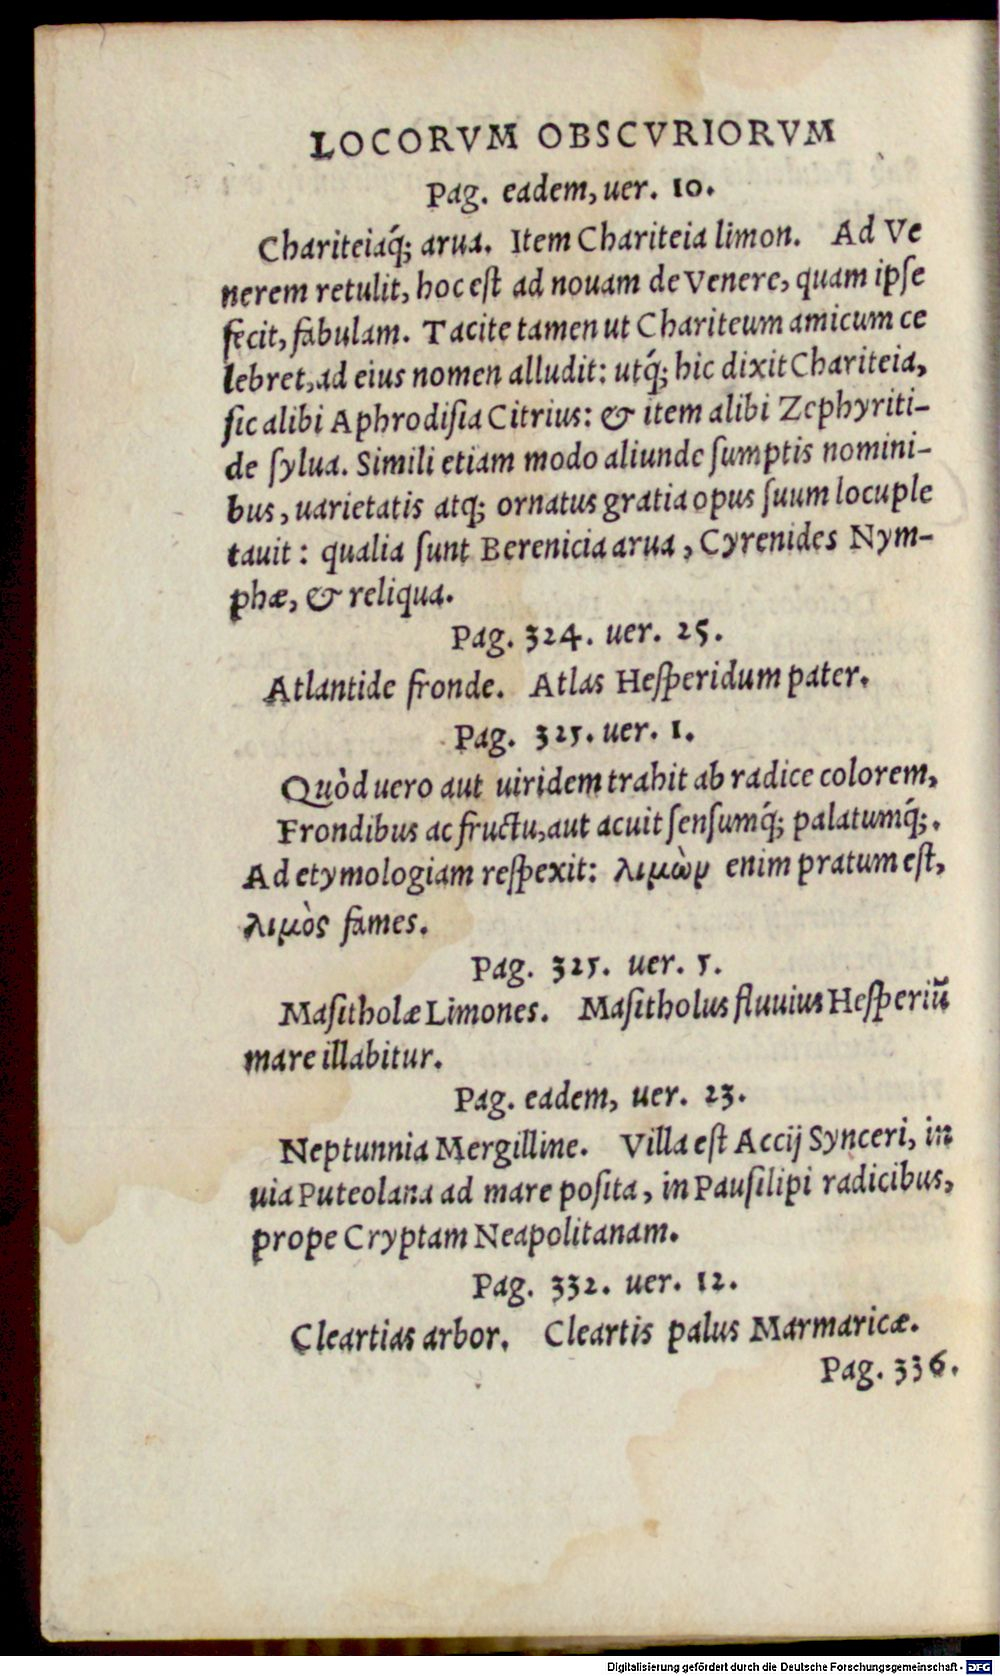 LOCORVM OBSCVRIORVM
Pag. eadem, uer. 10.
Chariteiaq́; arua. Item Chariteia limon. Ad Ve
nerem retulit, hoc est ad nouam de Venere, quam ipse
fecit, fabulam. Tacite tamen ut Chariteum amicum ce
lebret, ad eius nomen alludit: utq́; hic dixit Chariteia,
sic alibi Aphrodisia Citrius: & item alibi Zephyriti-
de sylua. Simili etiam modo aliunde sumptis nomini-
bus, uarietatis atq; ornatus gratia opus suum locuple
tauit: qualia sunt Berenicia arua, Cyrenides Nym-
phæ, & reliqua.
Pag. 324. uer. 25.
Atlantide fronde. Atlas Hesperidum pater.
Pag. 325. uer. 1.
Quòd uero aut uiridem trahit ab radice colorem,
Frondibus ac fructu, aut acuit sensumq́; palatumq́;.
Ad etymologiam respexit: λιμὼν enim pratum est,
λιμὸς fames.
Pag. 325. uer. 5.
Masitholæ Limones. Masitholus fluuius Hesperiũ
mare illabitur.
Pag. eadem, uer. 23.
Neptunnia Mergilline. Villa est Accij Synceri, in
uia Puteolana ad mare posita, in Pausilipi radicibus,
prope Cryptam Neapolitanam.
Pag. 332. uer. 12.
Cleartias arbor. Cleartis palus Marmaricæ.
Pag. 336.
Digitalisierung gefördert durch die Deutsche Forschungsgemeinschaft - DFG